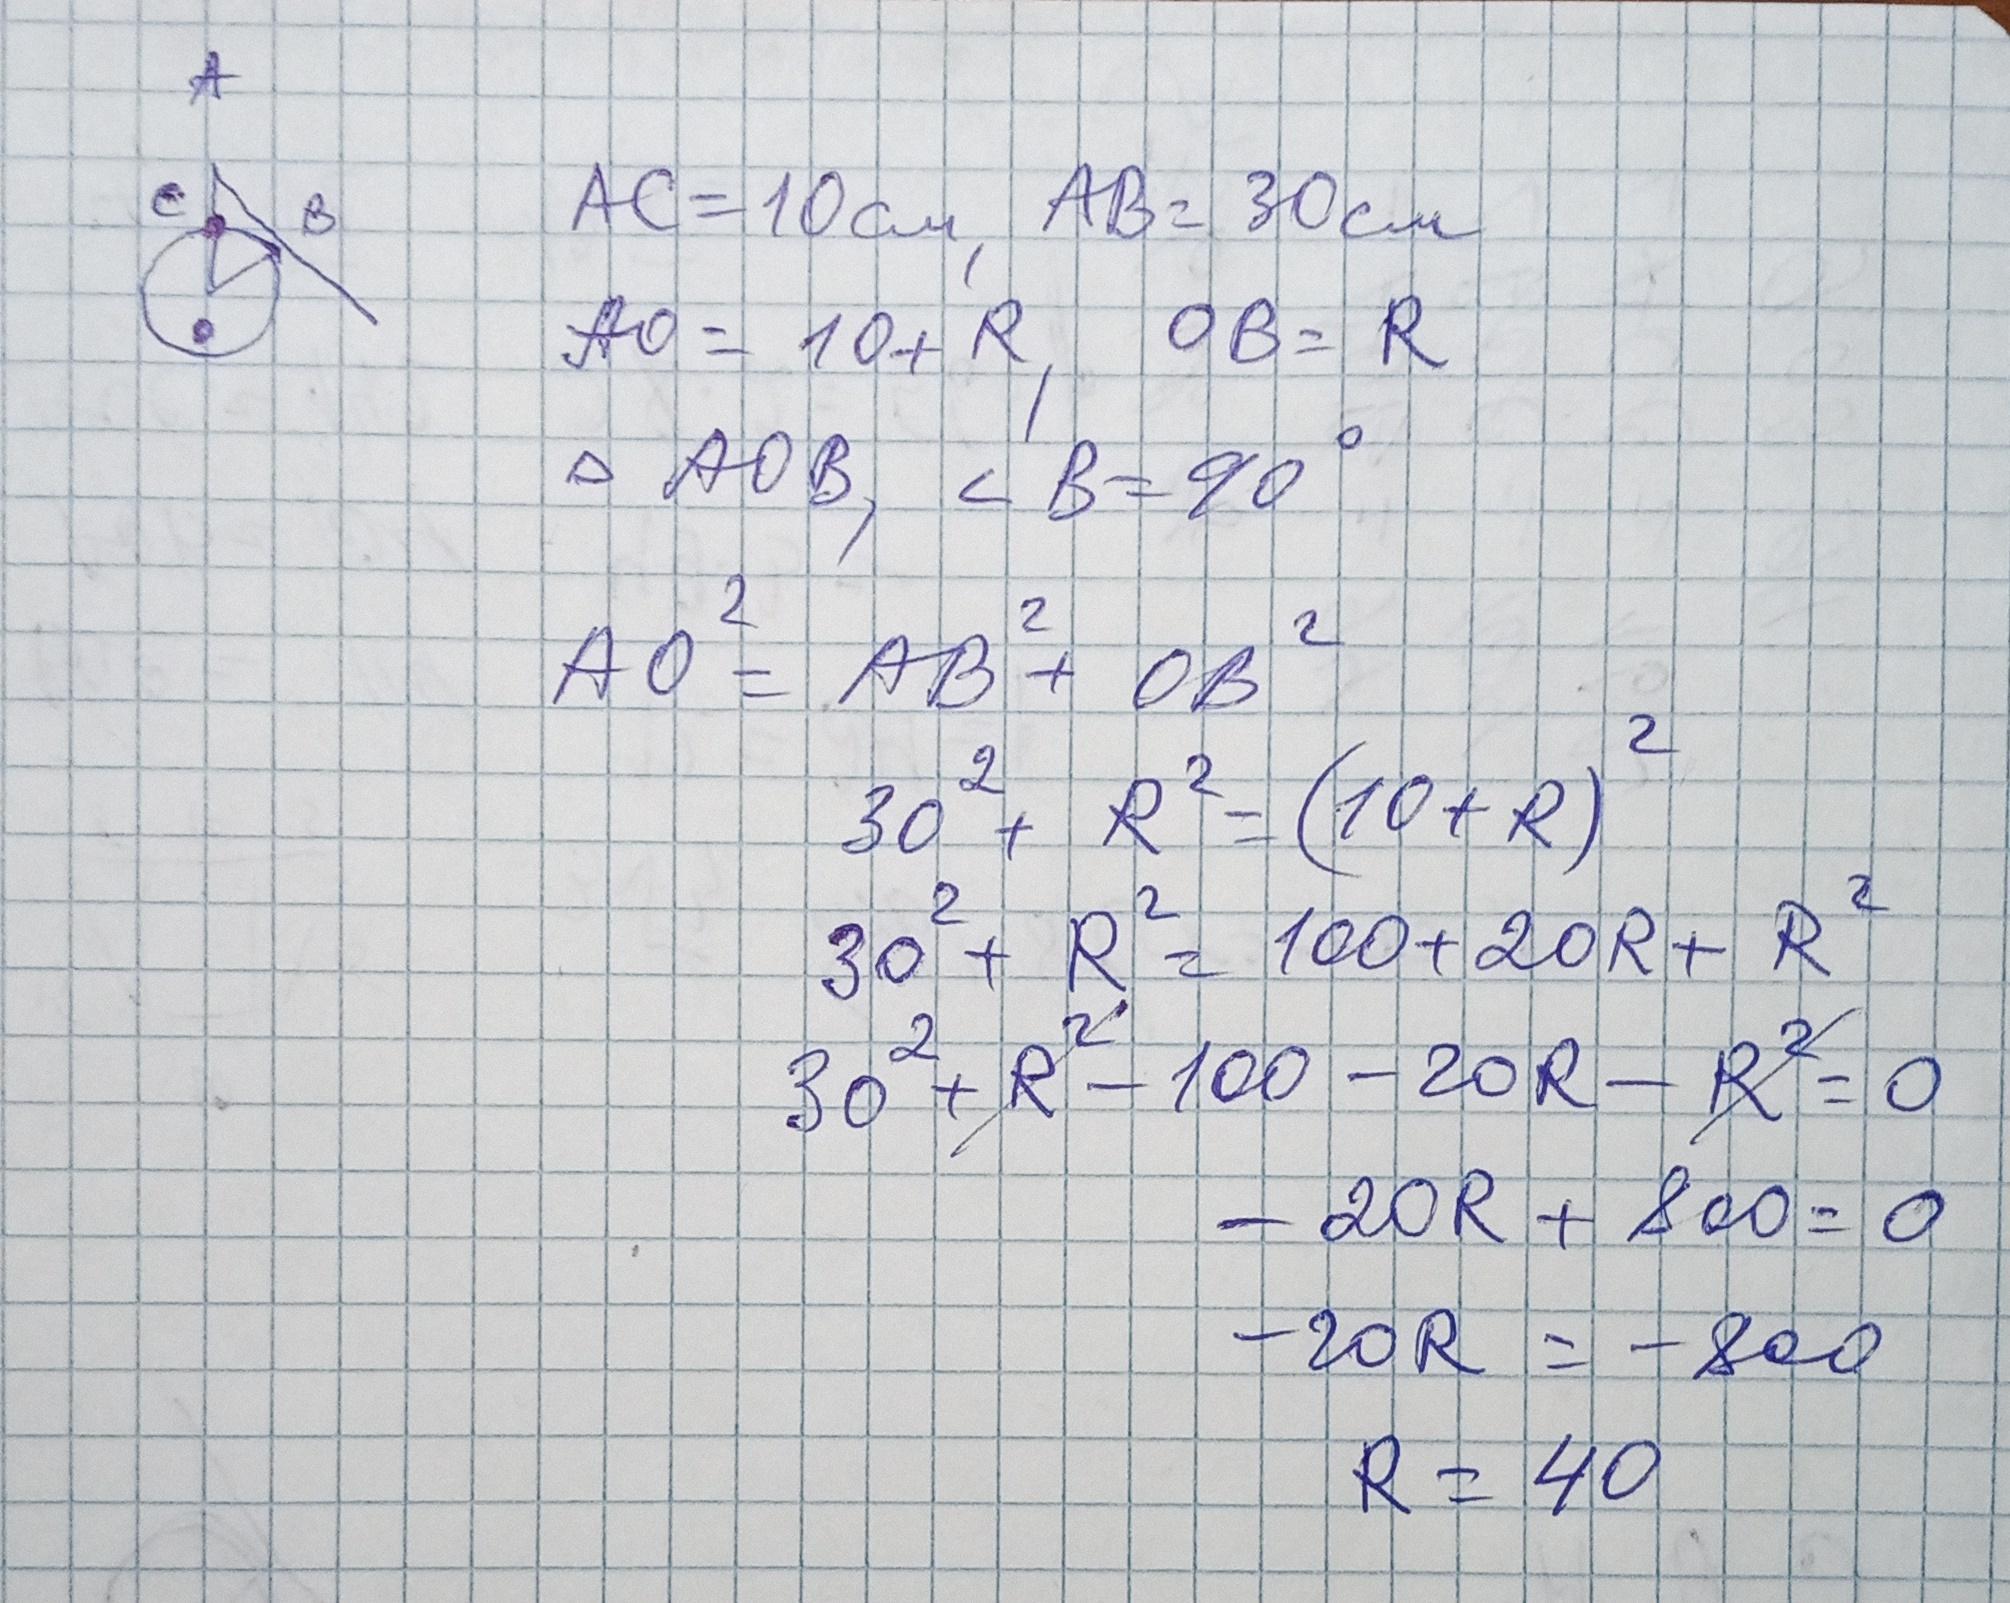 A
C B
O
AC = 10 см, AB = 30 см
AO = 10 + R, OB = R
△ AOB, < B = 90°
AO² = AB² + OB²
30² + R² = (10 + R)²
30² + R² = 100 + 20R + R²
30² + R² - 100 - 20R - R² = 0
- 20R + 800 = 0
-20R = - 800
R = 40